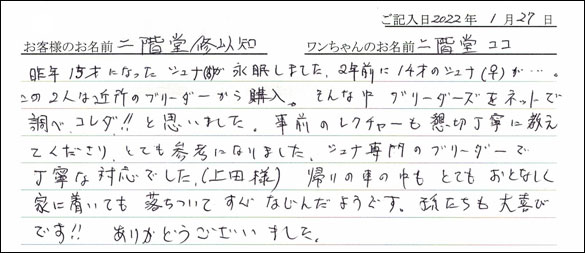 ご記入日2022年 1月27日
お客様のお名前 二階堂修以知 ワンちゃんのお名前 二階堂ココ
昨年15才になったシュナ(♂)が永眠しました。2年前に14才のシュナ(♀)が…。
この2人は近所のブリーダーから購入。そんな中ブリーダーズをネットで
調べ、コレダ!!と思いました。事前のレクチャーも懇切丁寧に教え
てくださり、とても参考になりました。シュナ専門のブリーダーで
丁寧な対応でした。(上田様) 帰りの車の中もとてもおとなしく
家に着いても落ちついてすぐなじんだようです。孫たちも大喜び
です!! ありがとうございました。